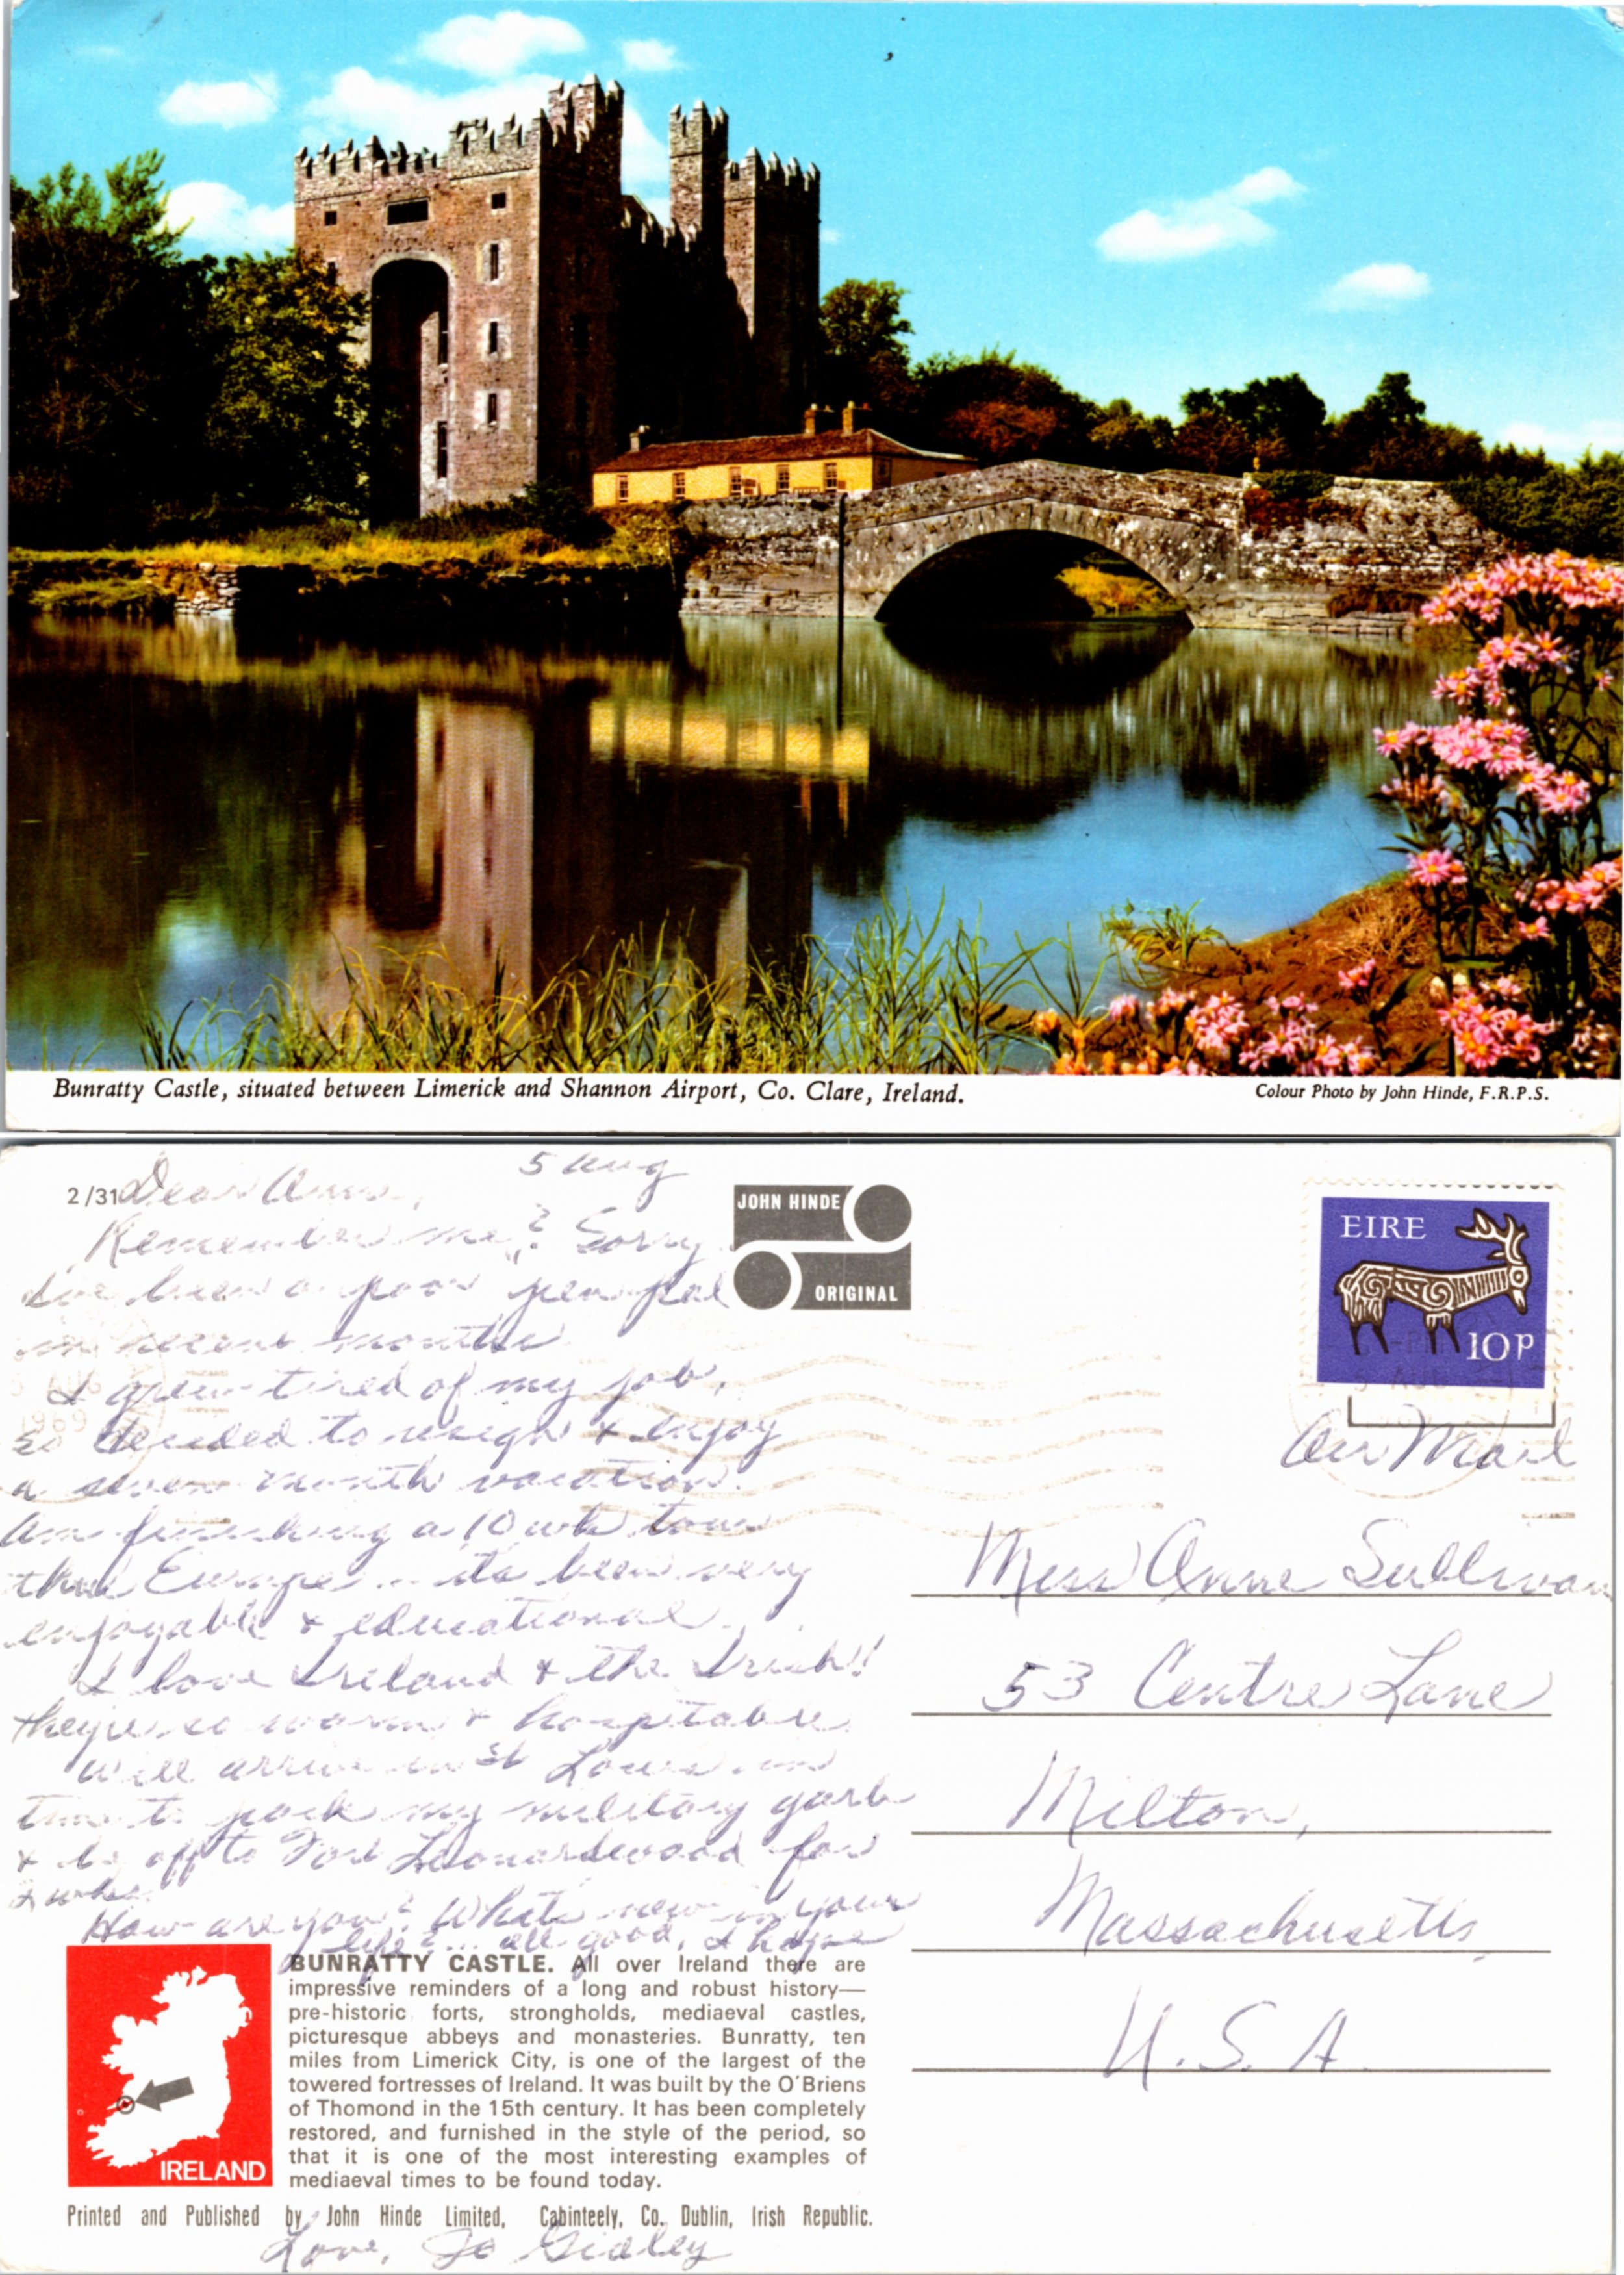 Bunratty Castle, situated between Limerick and Shannon Airport, Co. Clare, Ireland.
Colour Photo by John Hinde, F.R.P.S.
2/31
5 Aug
Dear Anne,
Remember me? Sorry
I've been a poor pen pal
in recent months.
I grew tired of my job,
so decided to resign & enjoy
a seven month vacation.
Am finishing a 10 wk tour
thru Europe... it's been very
enjoyable & educational.
I love Ireland & the Irish!
they're so warm & hospitable.
Will arrive in St Louis in
time to pack my military garb
& be off to Fort Leonardwood for
2 wks.
How are you? What's new in your
life?... all good, I hope
JOHN HINDE
ORIGINAL
EIRE
10p
AUG
1969
Air Mail
Miss Anne Sullivan
53 Centre Lane
Milton,
Massachusetts
U.S.A.
IRELAND
BUNRATTY CASTLE. All over Ireland there are
impressive reminders of a long and robust history—
pre-historic forts, strongholds, mediaeval castles,
picturesque abbeys and monasteries. Bunratty, ten
miles from Limerick City, is one of the largest of the
towered fortresses of Ireland. It was built by the O'Briens
of Thomond in the 15th century. It has been completely
restored, and furnished in the style of the period, so
that it is one of the most interesting examples of
mediaeval times to be found today.
Printed and Published by John Hinde Limited, Cabinteely, Co. Dublin, Irish Republic.
Love, Jo Gidley